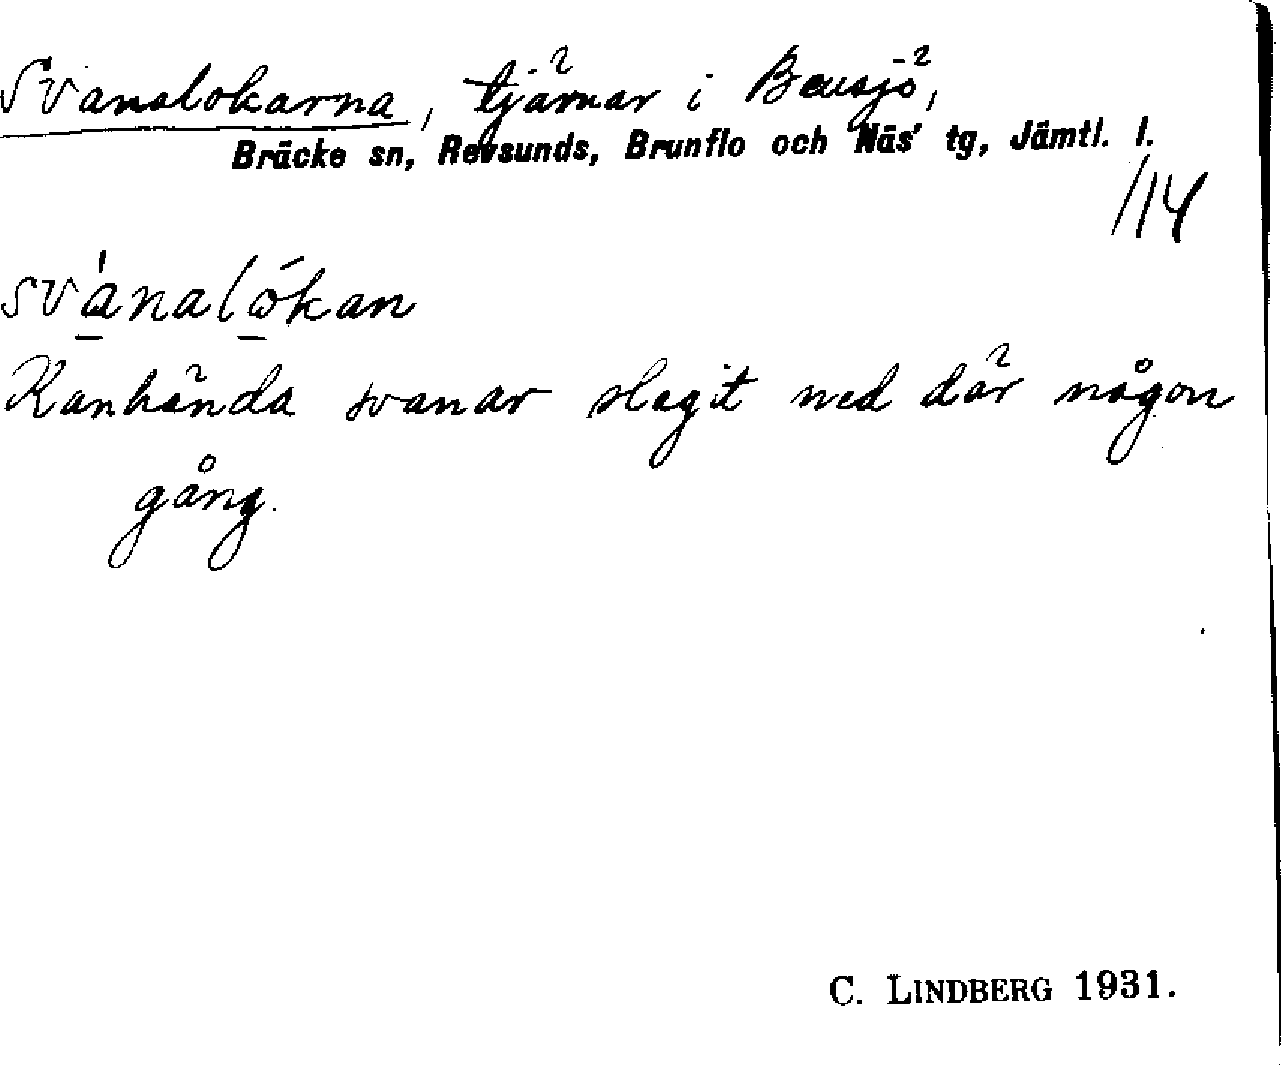 Svanalokarna, tjärnar i Bensjö,
Bräcke sn, Revsunds, Brunflo och Näs' tg, Jämtl. l.
/14
svánalókan
Kanhända svanar slagit ned där någon
gång.
C. LINDBERG 1931.